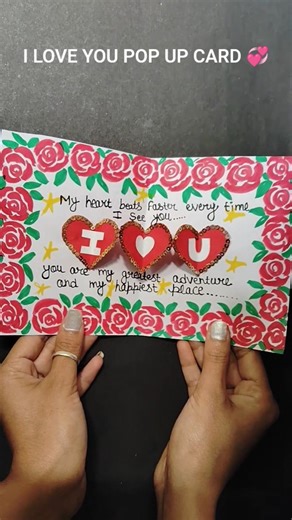 I LOVE YOU POP UP CARD 💞
My heart beats Faster every time
I see you.....
I ♥ U
you are my greatest adventure
and my happiest place.........